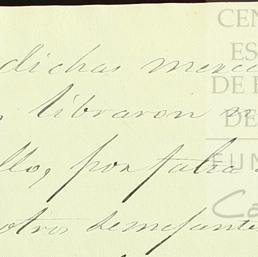 dichas merc
libraron
llo, por falta
otros semejante
CEN
ES
DE E
DE
FUN
Ca